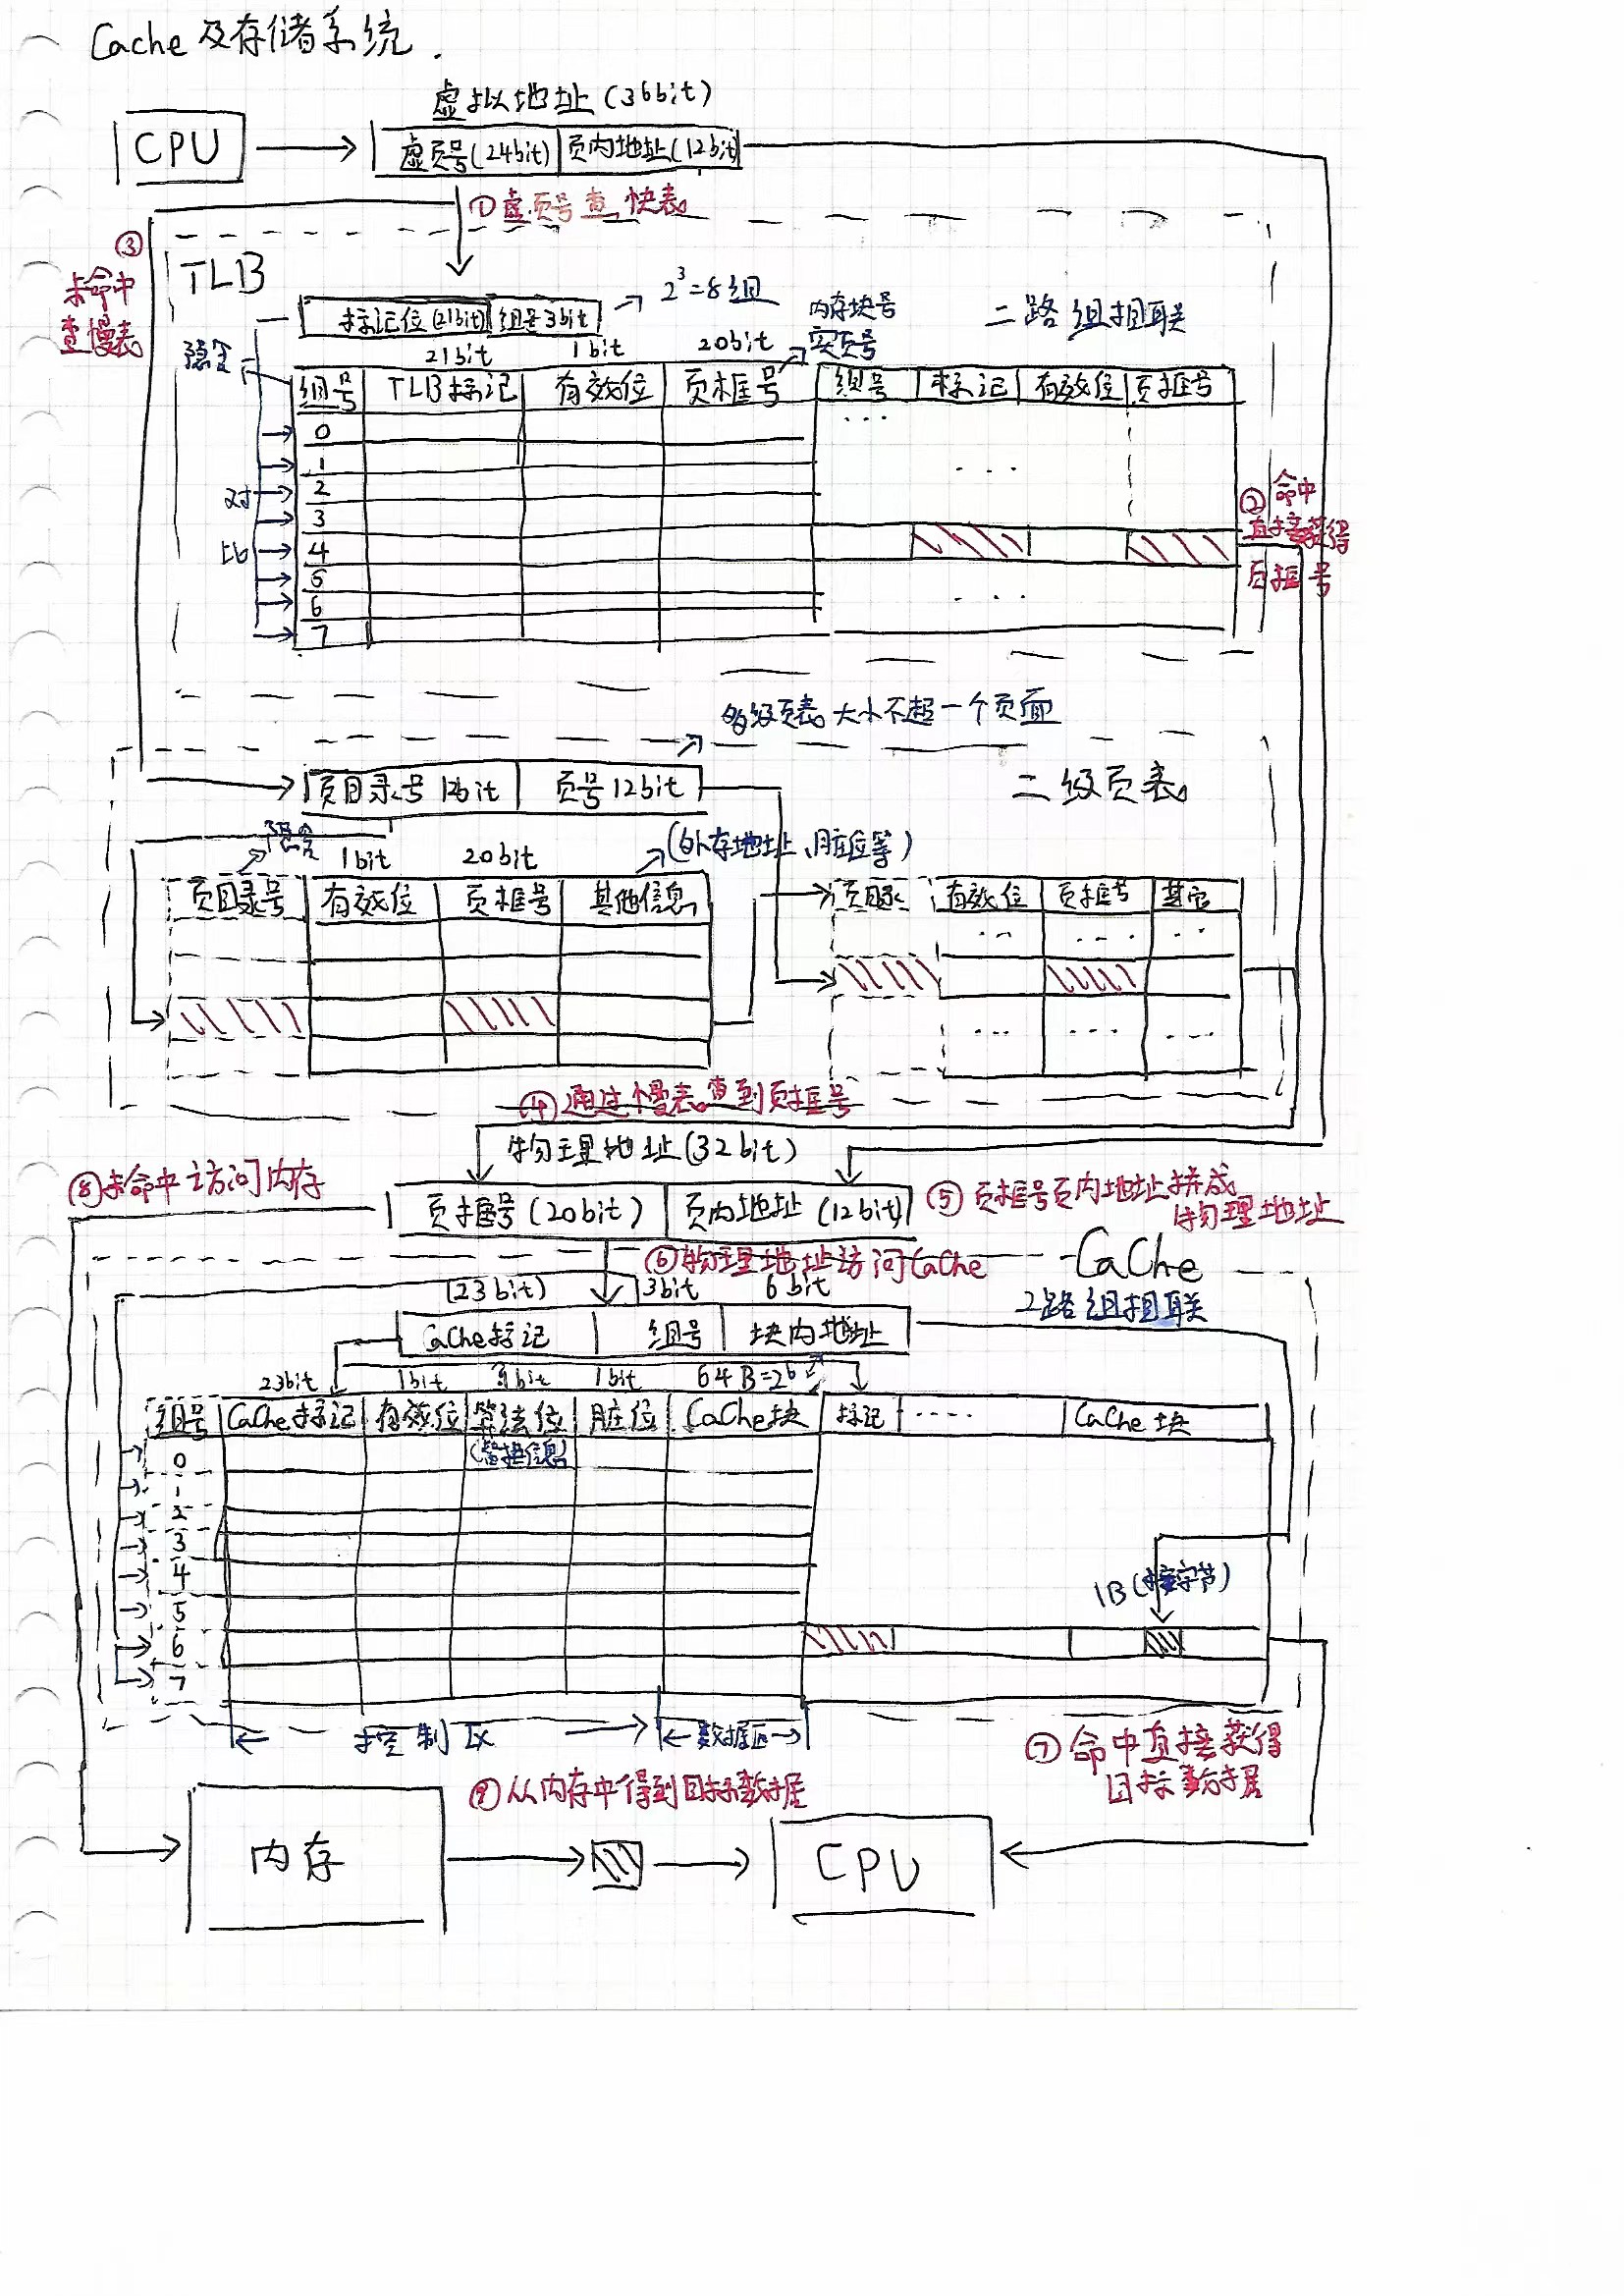 Cache及存储系统.
虚拟地址(36bit)
CPU
虚页号(24bit) 页内地址(12bit)
①虚页号查快表
③
未命中
查慢表
TLB
标记位(21bit) 组号3bit
2³=8组
内存块号
实页号
二路组相联
隐含
21bit 1bit 20bit
组号 TLB标记 有效位 页框号 组号 标记 有效位 页框号
0 ...
1 ...
2
3
4
5
6 ...
7
对
比
②命中
直接获得
页框号
各级页表大小不超一个页面
页目录号12bit 页号12bit
二级页表
隐含
1bit 20bit
(外存地址、脏位等)
页目录号 有效位 页框号 其他信息
页目录 有效位 页框号 其它
... ... ...
... ... ...
④通过慢表查到页框号
物理地址(32bit)
⑧未命中访问内存
页框号(20bit) 页内地址(12bit)
⑤页框号页内地址拼成
物理地址
⑥物理地址访问Cache
Cache
2路组相联
(23bit) 3bit 6bit
Cache标记 组号 块内地址
23bit 1bit 1bit 64B=2⁶
组号 Cache标记 有效位 算法位 脏位 Cache块 标记 .... Cache块
(替换信息)
0
1
2
3
4
5
6
7
1B(按字节)
控制区 数据区
⑦命中直接获得
目标数据
⑨从内存中得到目标数据
内存
CPU